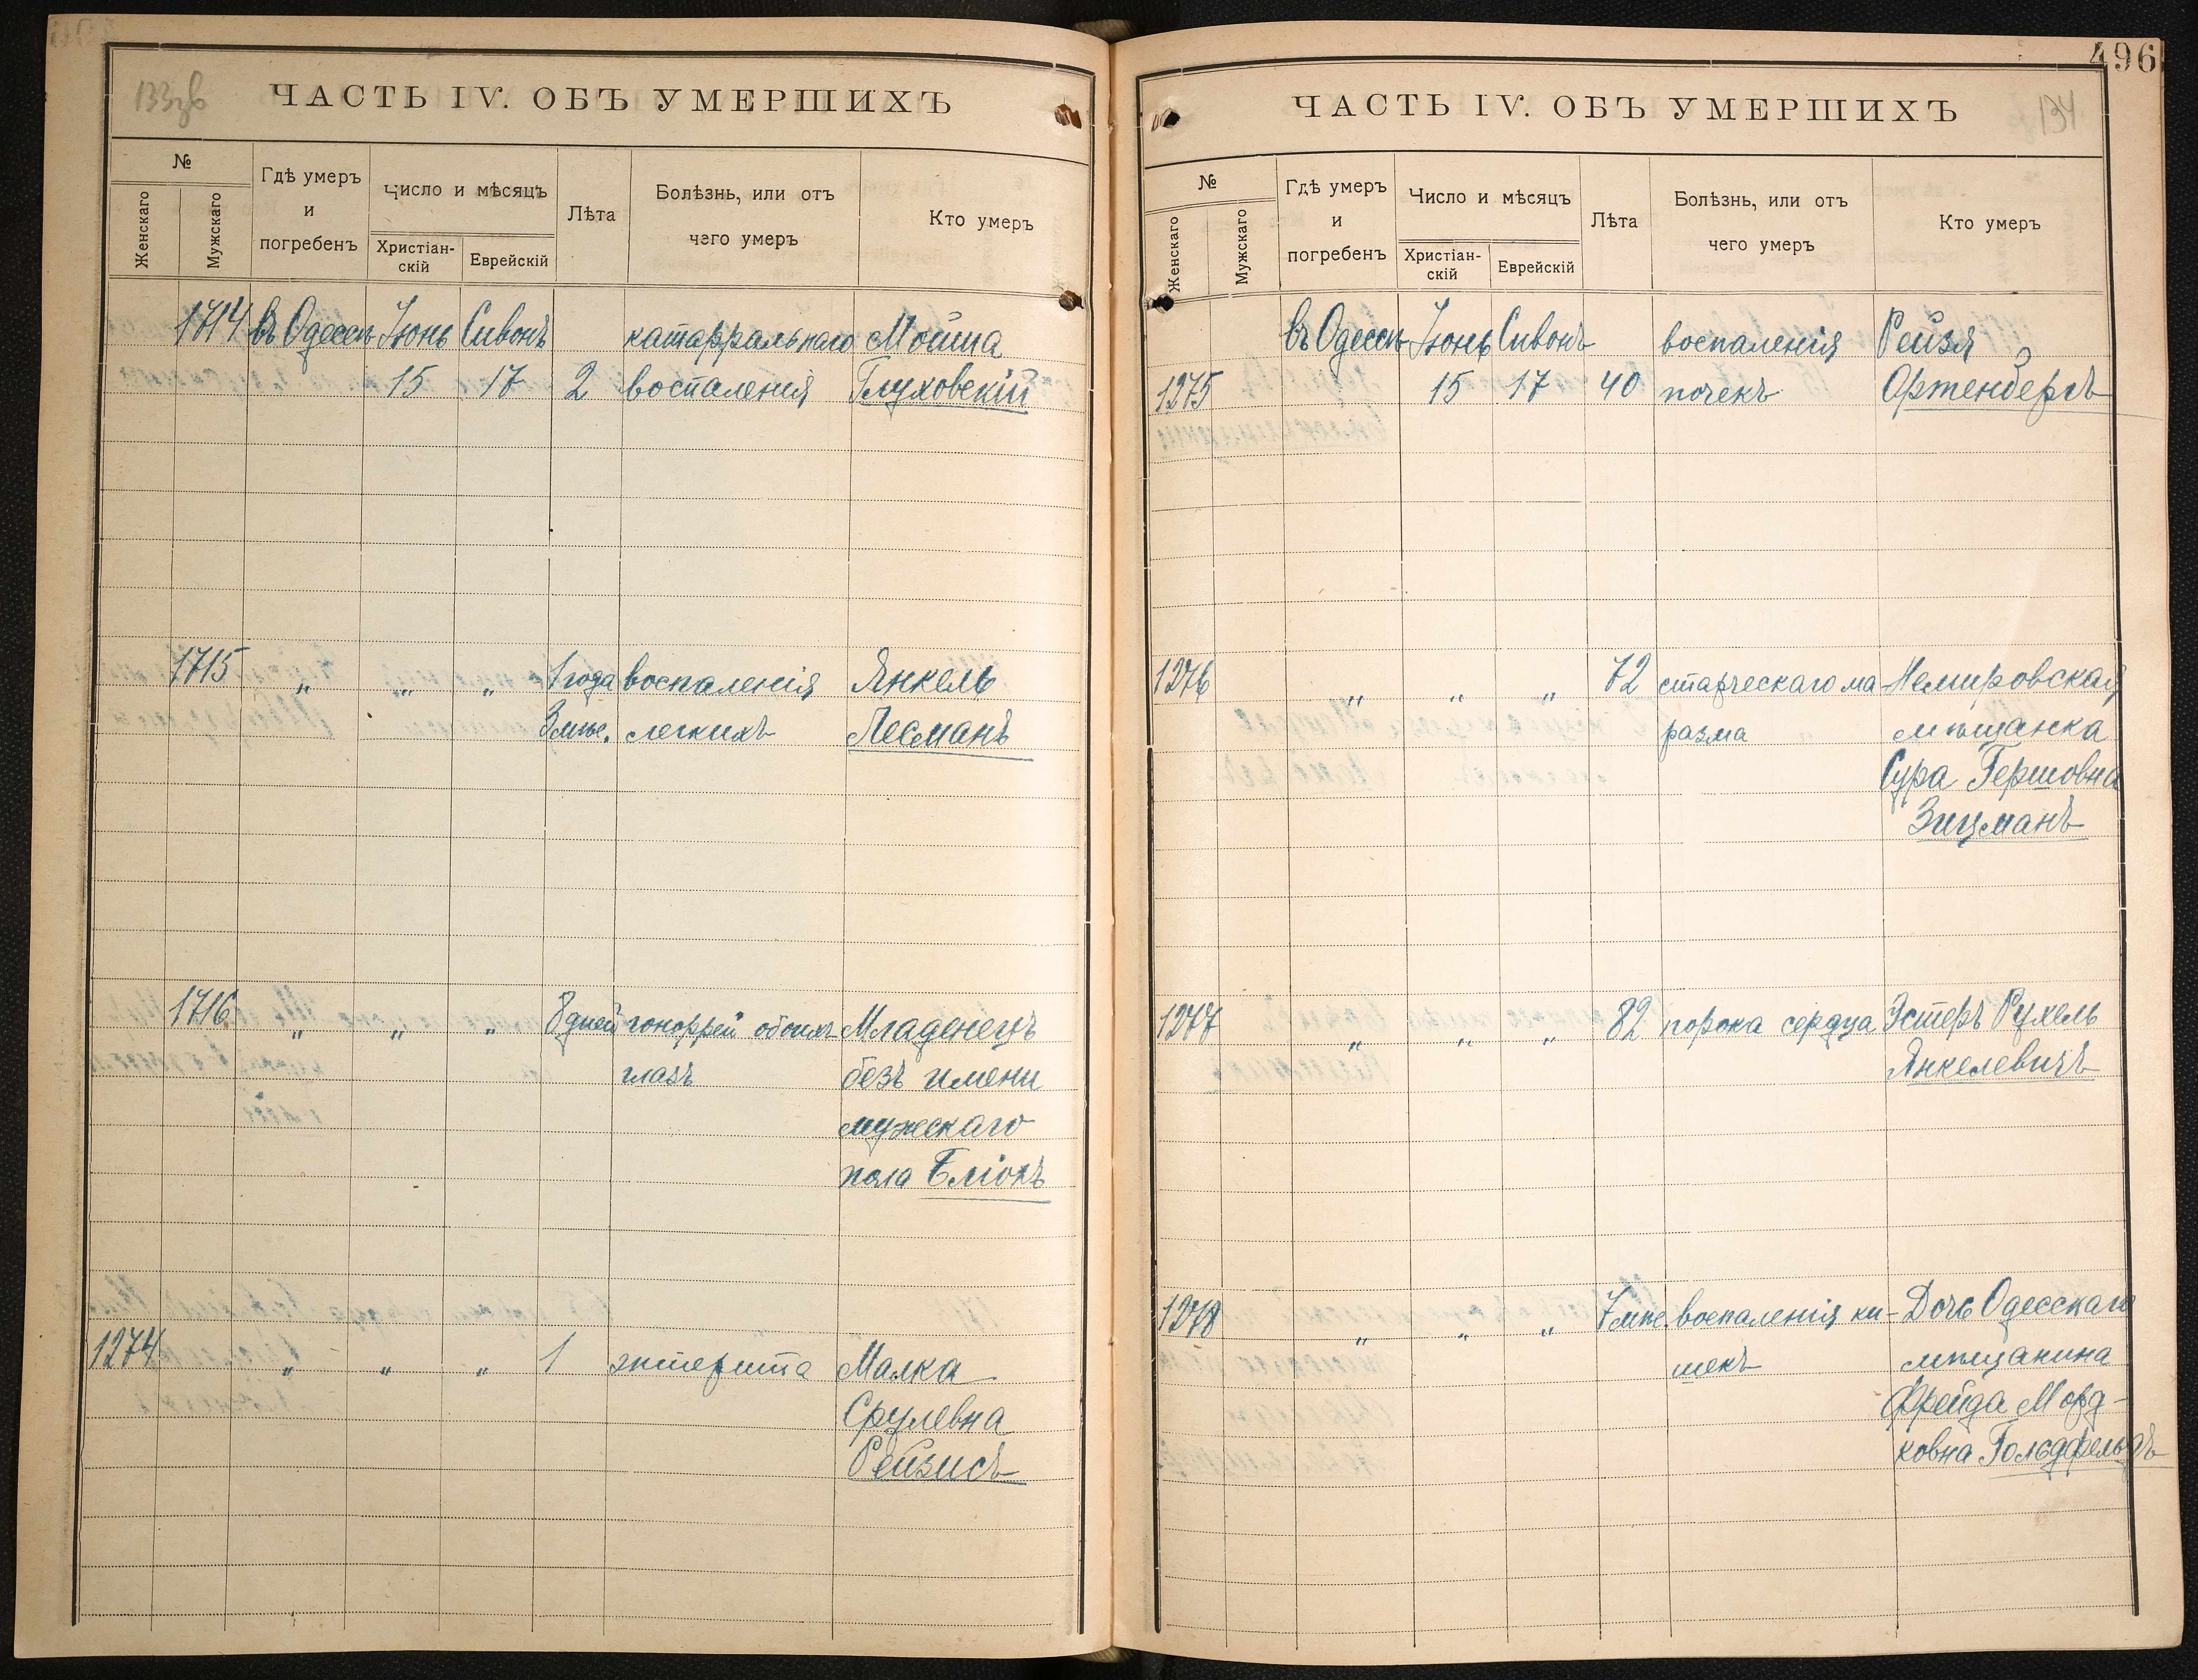 133 об
ЧАСТЬ IV. ОБЪ УМЕРШИХЪ
№
Женскаго
Мужскаго
Гдѣ умеръ
и
погребенъ
Число и мѣсяцъ
Христіан-
скій
Еврейскій
Лѣта
Болѣзнь, или отъ
чего умеръ
Кто умеръ
1714 въ Одессѣ Іюнь Сивонъ катарральнаго Мойша
15 17 2 воспаленія Глуховскій
1715 „ „ „ 1 года воспаленія Янкель
3 мѣс. легкихъ Лесманъ
1716 „ „ „ 8 дней гоноррей обоихъ Младенецъ
глазъ безъ имени
мужескаго
пола Бліокъ
1274 „ „ „ 1 энтерита Малка
Срулевна
Рейзисъ
496
134
ЧАСТЬ IV. ОБЪ УМЕРШИХЪ
№
Женскаго
Мужскаго
Гдѣ умеръ
и
погребенъ
Число и мѣсяцъ
Христіан-
скій
Еврейскій
Лѣта
Болѣзнь, или отъ
чего умеръ
Кто умеръ
въ Одессѣ Іюнь Сивонъ воспаленія Рейзя
1275 15 17 40 почекъ Ортенбергъ
1276 „ „ „ 72 старческаго ма- Немировская
разма мѣщанка
Сура Гершовна
Зицманъ
1277 „ „ „ 82 порока сердца Эстеръ Рухель
Янкелевичъ
1278 „ „ „ 7 мѣс. воспаленія ки- Дочь Одесскаго
шекъ мѣщанина
Фрейда Морд-
ковна Гольдфельдъ